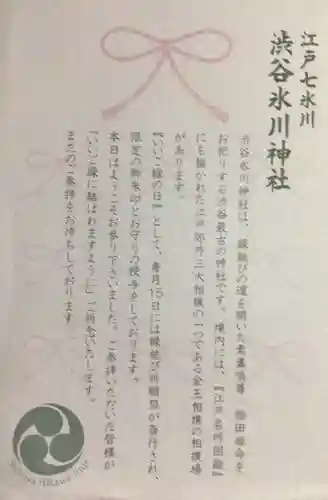 江戸七氷川
渋谷氷川神社
渋谷氷川神社は、縁結びの道を開いた素盞鳴尊 稲田姫命を
お祀りする渋谷最古の神社です。境内には、『江戸名所図会』
にも描かれた江戸郊外三大相撲の一つである金王相撲の相撲場
があります。
『いいご縁の日』として、毎月15日には縁結び祈願祭が斎行され、
限定の御朱印とお守りの授与をしております。
本日はようこそお参り下さいました。ご参拝いただいた皆様が
『いいご縁に結ばれますように』ご祈念いたします。
またのご参拝をお待ちしております。
Shibuya Hikawa Shrine